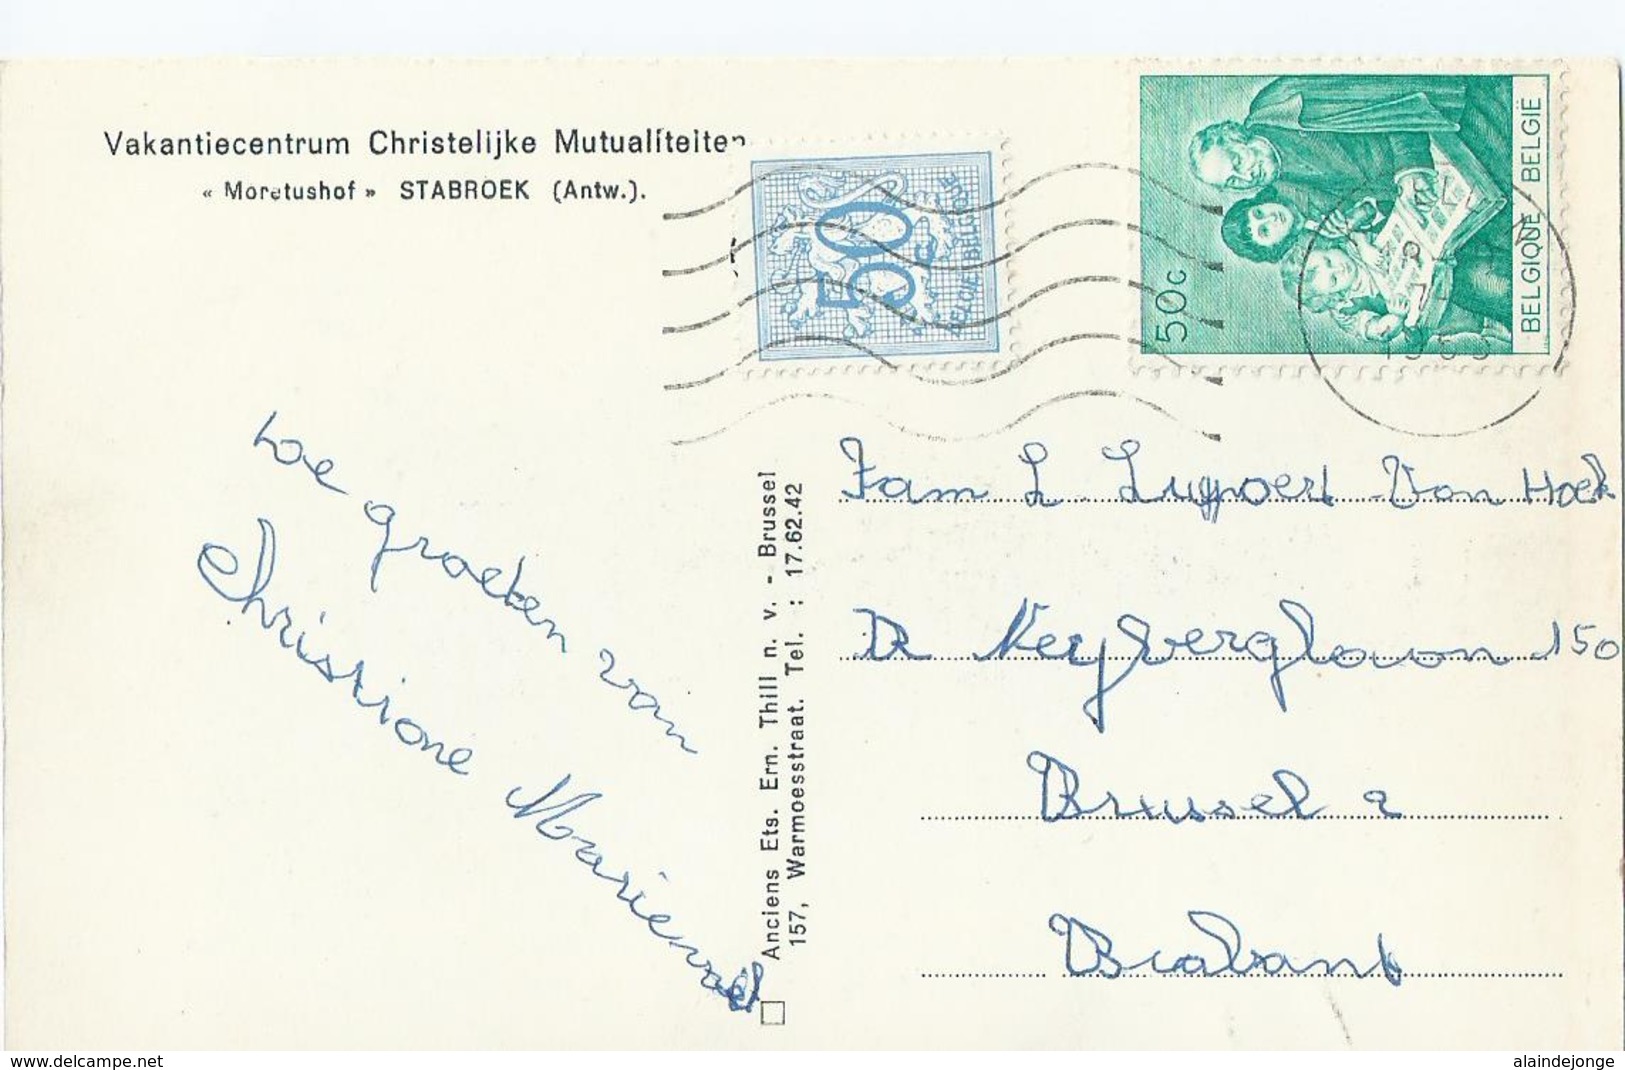 Vakantiecentrum Christelijke Mutualiteiten
« Moretushof » STABROEK (Antw.).
50c
BELGIE BELGIQUE
50c
BELGIQUE BELGIË
de groeten van
Christiane Marievoet
Anciens Ets. Ern. Thill n. v. - Brussel
157, Warmoesstraat. Tel. : 17.62.42
Fam L Luypoert Van Hoek
150
Brussel 2
Brabant
www.delcampe.net
alaindejonge